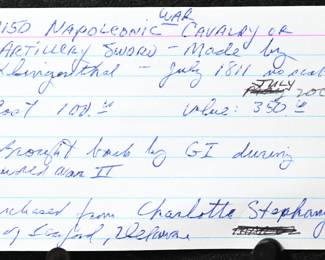 #150 Napoleonic WAR Cavalry or
Artillery Sword – Made by
Klingenthal – July 1811 no scab
JULY
Cost 100.00 value: 350.00
200
Brought back by GI during
World War II
Purchased from Charlotte Stephany
of Seaford, Delaware